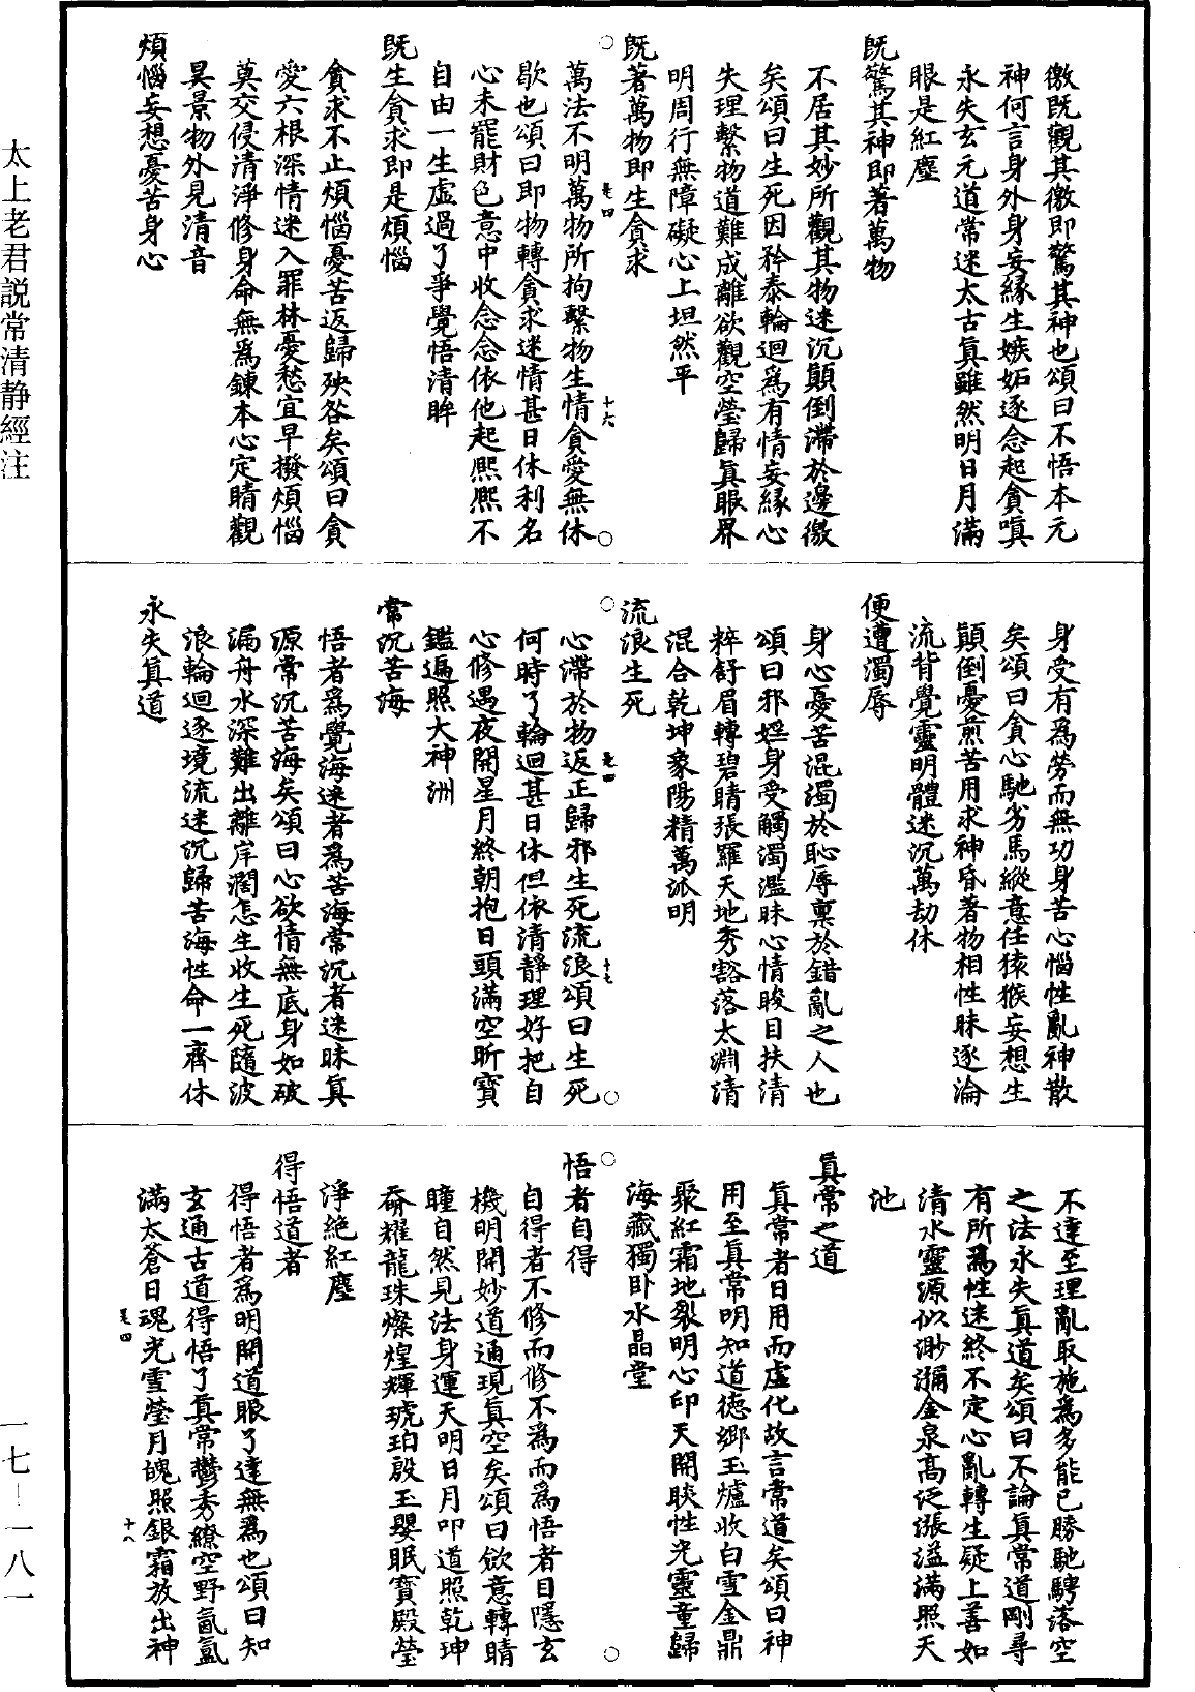 徼既觀其徼即驚其神也頌曰不悟本元
神何言身外身妄緣生嫉妬逐念起貪嗔
永失玄元道常迷太古真雖然明日月滿
眼是紅塵
既驚其神即著萬物
不居其妙所觀其物迷沉顛倒滯於邊徼
矣頌曰生死因矜泰輪迴為有情妄緣心
失理繫物道難成離欲觀空瑩歸真眼界
明周行無障礙心上坦然平
既著萬物即生貪求
萬法不明萬物所拘繫物生情貪愛無休
歇也頌曰即物轉貪求迷情甚日休利名
心未罷財色意中收念念依他起熈熈不
自由一生虛過了爭覺悟清眸
既生貪求即是煩惱
貪求不止煩惱憂苦返歸殃咎矣頌曰貪
愛六根深情迷入罪林憂愁宜早撥煩惱
莫交侵清淨修身命無為鍊本心定睛觀
昊景物外見清音
煩惱妄想憂苦身心
身受有為勞而無功身苦心惱性亂神散
矣頌曰貪心馳劣馬縱意任猿猴妄想生
顛倒憂煎苦用求神昏著物相性昧逐淪
流背覺靈明體迷沉萬劫休
便遭濁辱
身心憂苦混濁於恥辱稟於錯亂之人也
頌曰邪婬身受觸濁濫昧心情睃目扶清
粹舒眉轉碧睛張羅天地秀豁落太淵清
混合乾坤象陽精萬派明
流浪生死
心滯於物返正歸邪生死流浪頌曰生死
何時了輪迴甚日休但依清靜理好把自
心修遇夜開星月終朝抱日頭滿空昕寶
鑑遍照大神洲
常沉苦海
悟者為覺海迷者為苦海常沉者迷昧真
源常沉苦海矣頌曰心欲情無底身如破
漏舟水深難出離岸濶怎生收生死隨波
浪輪迴逐境流迷沉歸苦海性命一齊休
永失真道
不達至理亂取施為多能已勝馳騁落空
之法永失真道矣頌曰不論真常道剛尋
有所為性迷終不定心亂轉生疑上善如
清水靈源似渺瀰金泉高泛漲溢滿照天
池
真常之道
真常者日用而虛化故言常道矣頌曰神
用至真常明知道德鄉玉爐收白雪金鼎
聚紅霜地裂明心印天開睒性光靈童歸
海藏獨卧水晶堂
悟者自得
自得者不修而修不為而為悟者目隱玄
機明開妙道通現真空矣頌曰斂意轉睛
瞳自然見法身運天明日月叩道照乾坤
奫耀龍珠燦煌輝琥珀殷玉嬰眠寶殿瑩
淨絶紅塵
得悟道者
得悟者為明開道眼了達無為也頌曰知
玄通古道得悟了真常鬱秀繚空野氤氳
滿太蒼日魂光雪瑩月魄照銀霜放出神
太上老君説常清静經注
一七－一八一